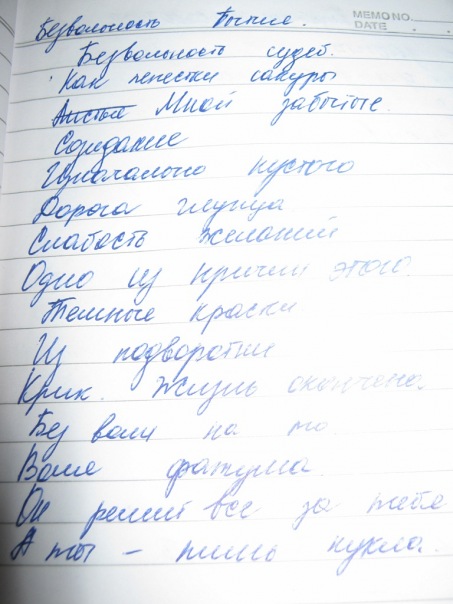 MEMO NO.
DATE . .
Безвольность Бытие.
Безвольность судеб.
Как лепестки сакуры
Листья Мной забытые.
Созидание
Изначально пустого
Дорога глупца
Слабость желаний
Одно из причин этого.
Темные краски
Из подворотни
Крик. Жизнь окончена
Без воли на то.
Воля фатума.
Он решит все за тебя
А ты - лишь кукла.